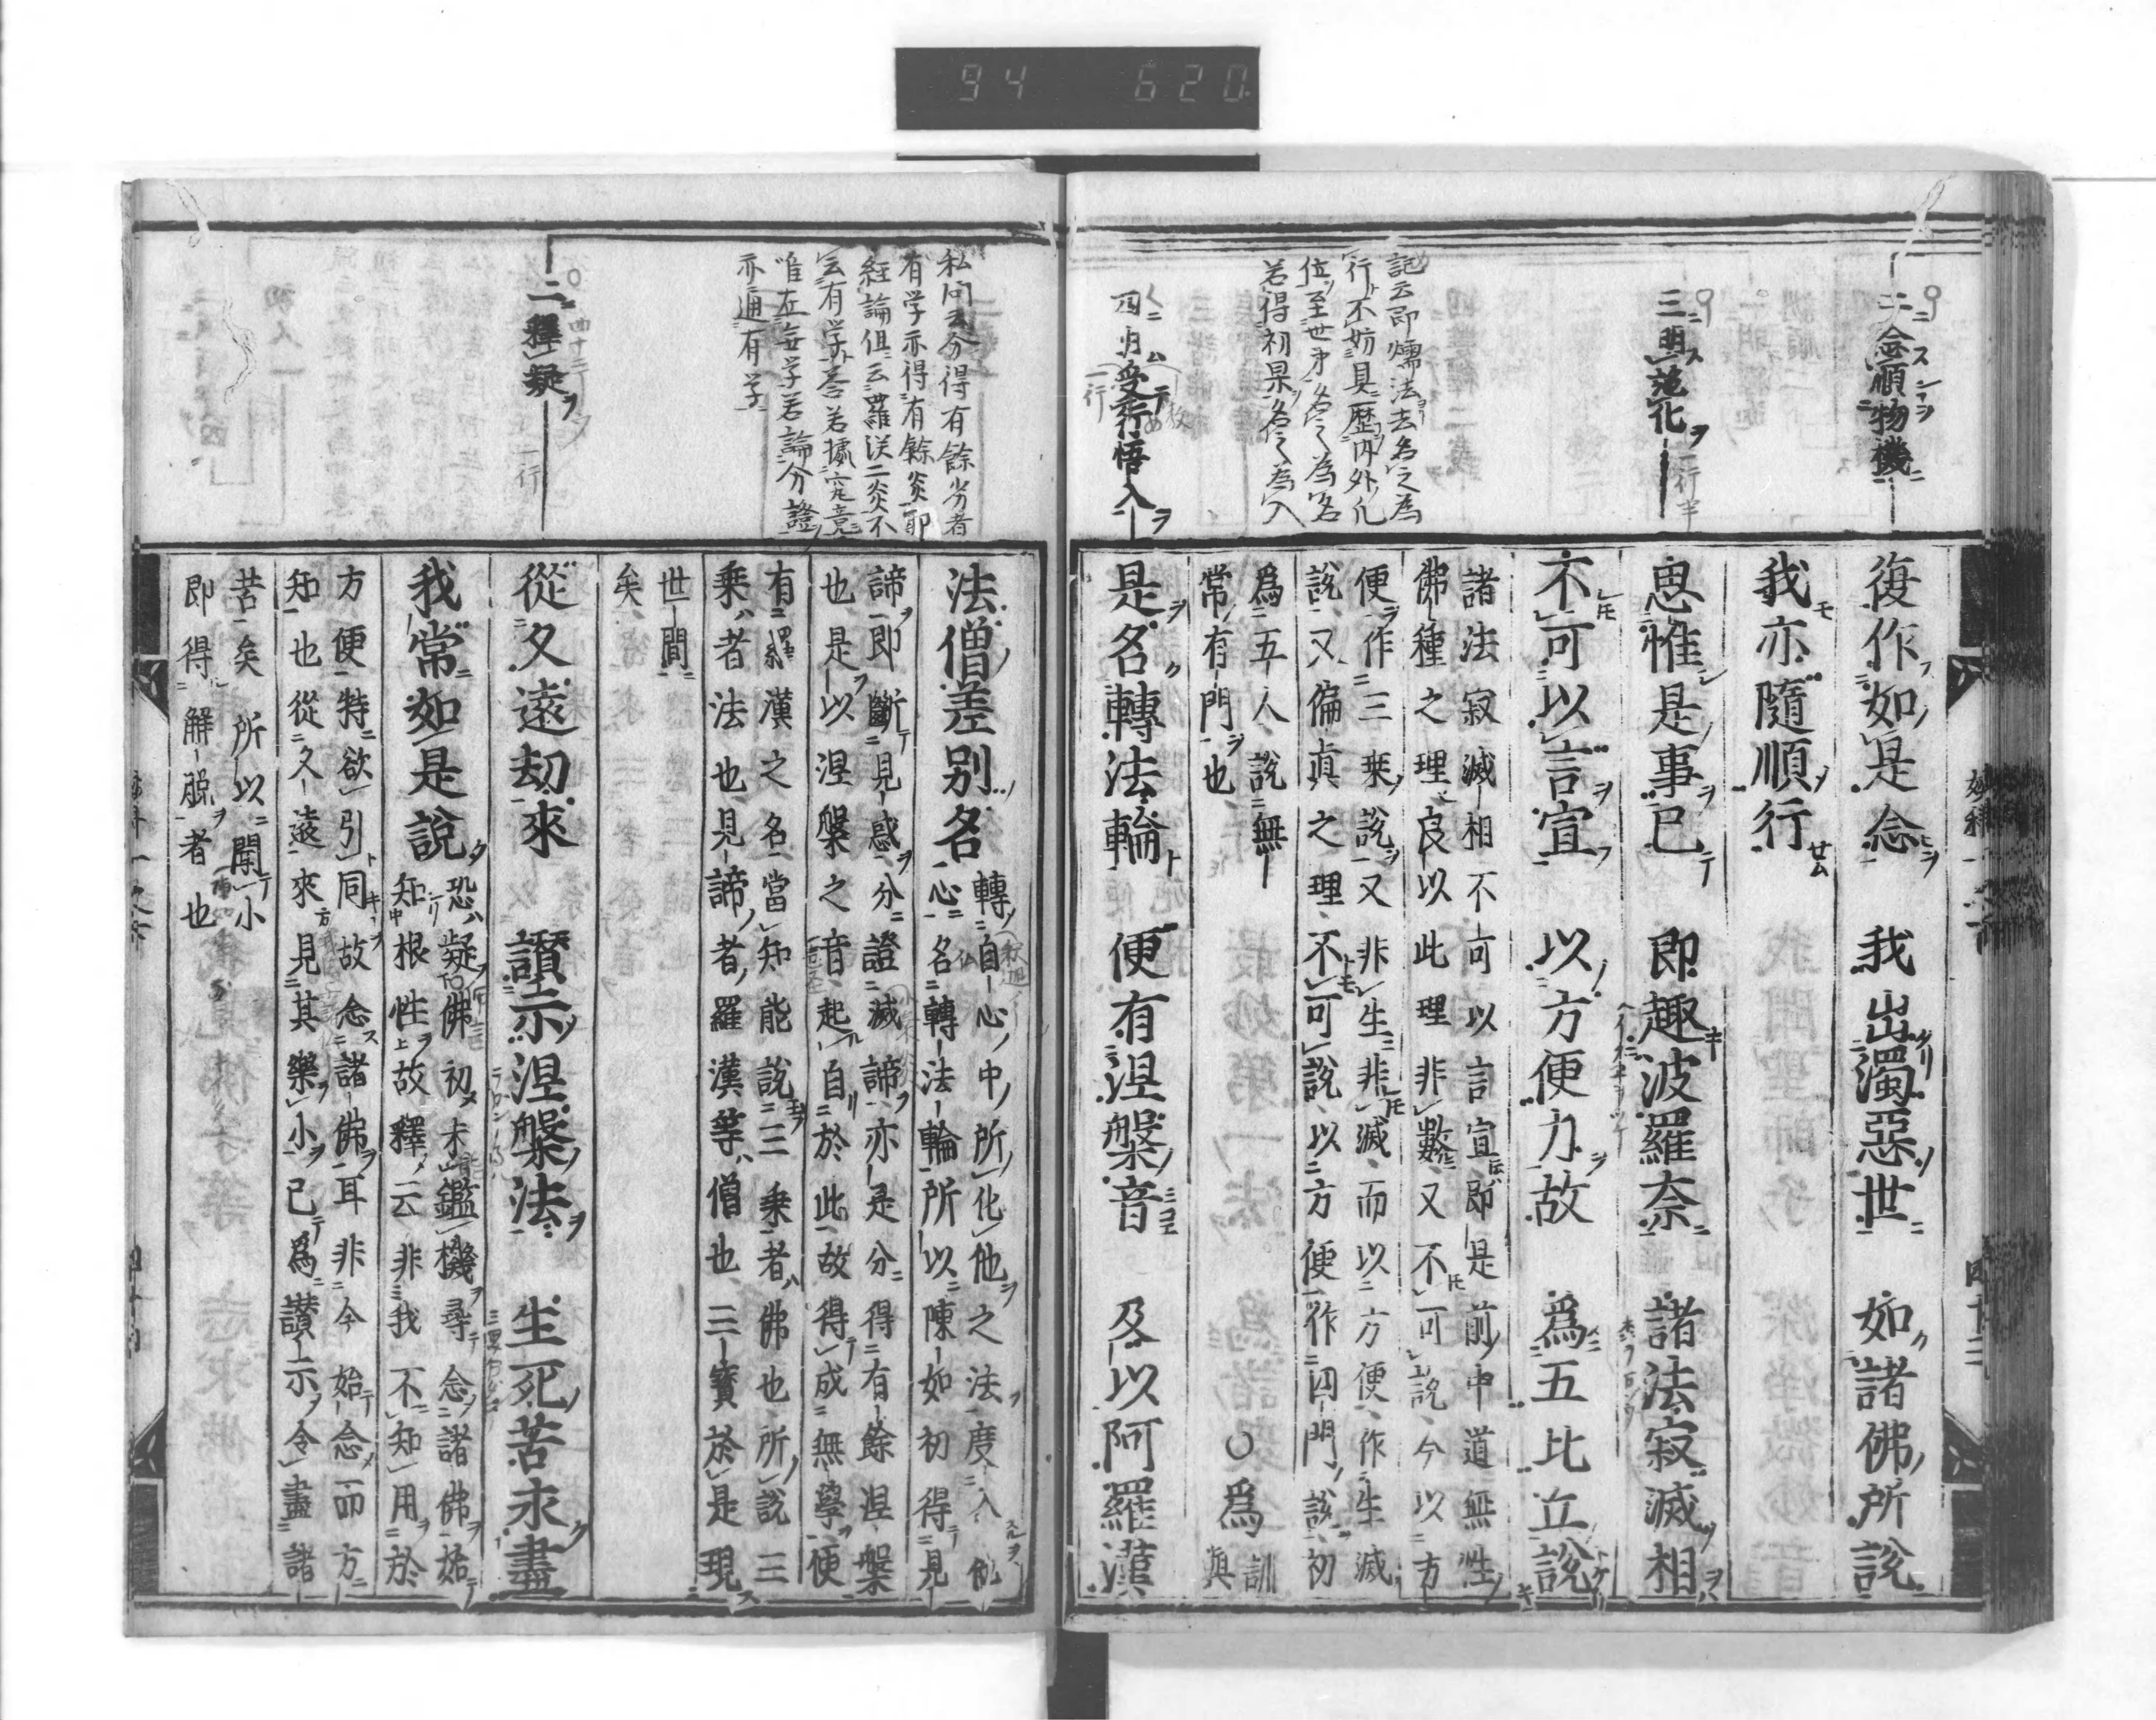 94 620
二念順物機
復作如是念 我出濁惡世 如諸佛所說
我亦隨順行
三明施化
思惟是事已 即趣波羅奈 諸法寂滅相
不可以言宣 以方便力故 爲五比丘說
諸法寂滅相不可以言宣即是前中道無性
佛種之理良以此理非數又不可說今以方
便作三乘說又非生非滅而以方便作生滅
說又偏眞之理不可說以方便作四門說初
爲五人說無
常有門也
○爲
訓
眞
記云即煗法去名之為
行不妨具歷内外凡
位至世才名為名
若得初果名為入
四明受行悟入
是名轉法輪 便有涅槃音 及以阿羅漢
私問云分得有餘劣者
有学亦得有餘矣耶
経論但云羅漢二矣不
云有学答若據究竟
唯在無学若論分證
亦通有学
法僧差別名
轉自心中所化他之法度入他
心名轉法輪所以陳如初得見
諦即斷見惑分證滅諦亦是分得有餘涅槃
也是以涅槃之音起自於此故得成無學便
有羅漢之名當知能說三乘者佛也所說三
乘者法也見諦者羅漢等僧也三寶於是現
世間
矣
二釋疑
從久遠劫來 讚示涅槃法 生死苦永盡
我常如是說
恐疑佛初未鑑機尋念諸佛始
知根性故釋云非我不知用於
方便特欲引同故念諸佛耳非今始念而方
知也從久遠來見其樂小已爲讚示令盡諸
苦矣所以聞小
即得解脫者也